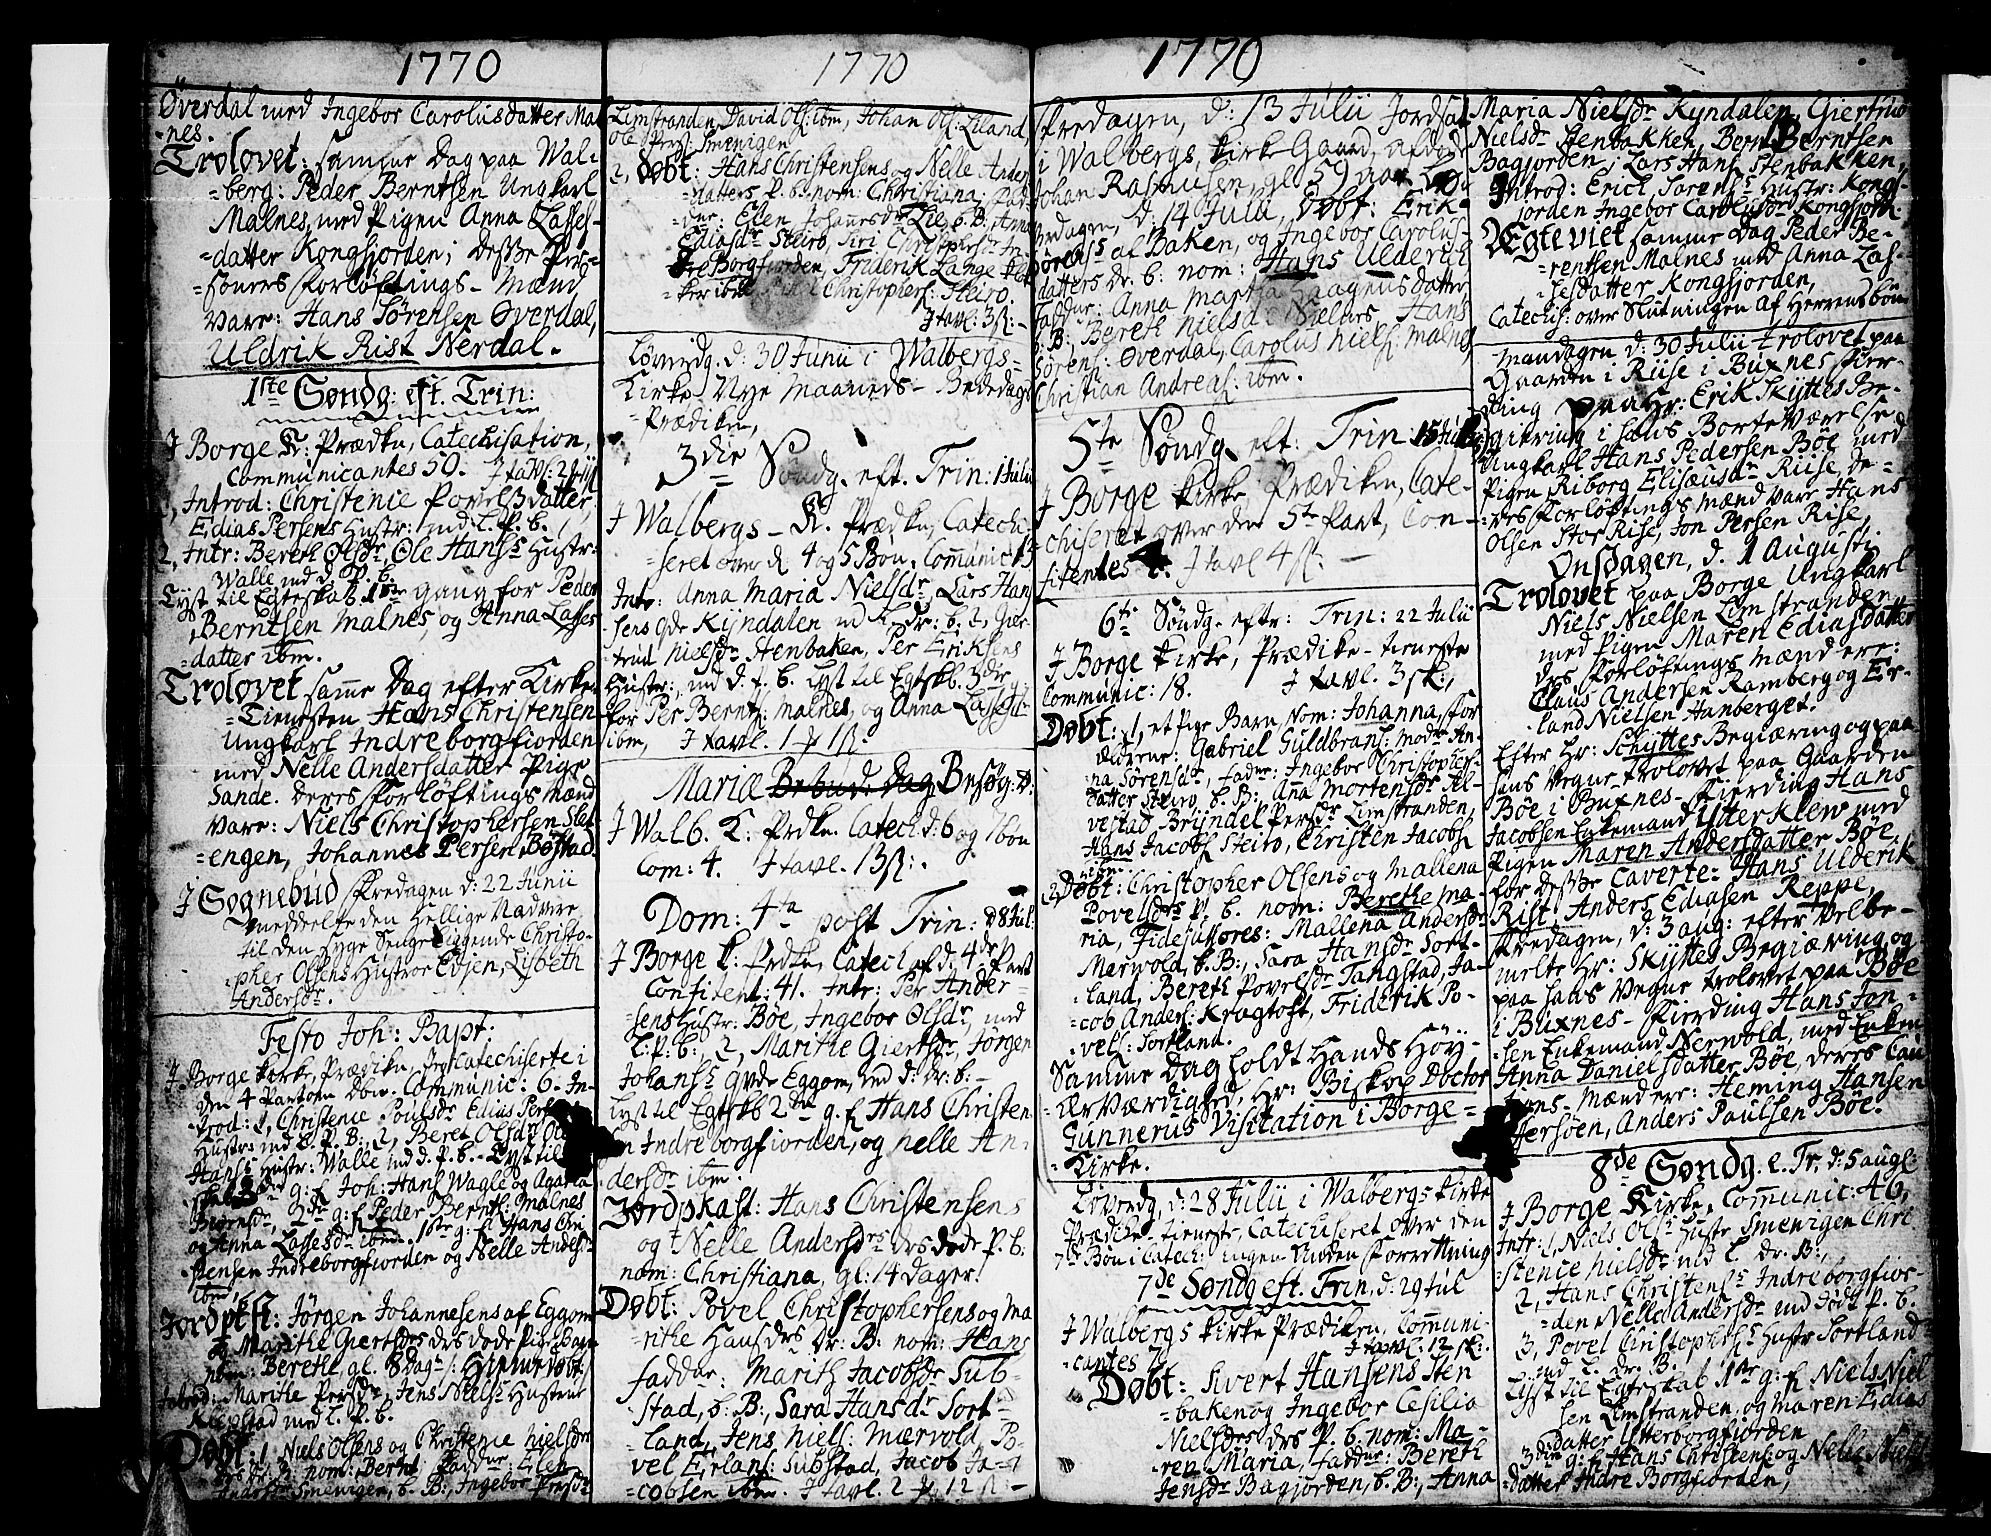 1770
Øverdal med Ingebor Carolusdatter Mal-
-nes.
Trolovet: samme Dag paa Wal-
-berg: Peder Berntsen Ungkarl
Malnes, med Pigen Anna Lasses-
-datter Kongsjorden; Desse Per-
-soners Forløftings-Mænd
vare: Hans Sørensen Øverdal,
Uldrik Rist Nerdal.
1ste Søndg: eft. Trin:
J Borge K: Prædkn, Catechisation,
Communicantes 50. J tavl: 2
1, Introd: Christenie Povelsdatter
Edias Persens Hustr: md l. P. b.
2, Intr: Bereth Olsdr, Ole Hanss Hustr:
Walle md d. P. b.
Lyst til Egteskab 1ste gang for Peder
Berntsen Malnes, og Anna Lasses
-datter ibm.
Trolovet samme Dag efter Kirke-
-Tienesten Hans Christensen
Ungkarl Indreborgfiorden
med Nelle Andersdatter Pige
Sande. deres Forløftings Mænd
vare: Niels Christophersen Slet-
-engen, Johannes Persen Bøstad.
J Sognebud Fredagen d: 22 Junii
meddelte den Hellige Nadvere
til den syge Sengeliggende Christo-
-pher Olsens Hustroe Edjen, Lisbeth
Andersdr.
Festo Joh: Bapt:
J Borge Kirke, Prædikn, Catechiserte i
den 4 Parten Bøn. Communic: 6. In-
-trod: 1, Christenie Poulsdr Edias Pers
Hustr: md l. P. B:, 2, Beret Olsdr Ole
Hanss Hustr: Walle md d. P. b. Lyst til
g: f Joh: Hans Wagle og Agata
Biørnsdr, 2de g: f Peder Bernts: Malnes
og Anna Lassesdr ibm. 1ste g: f Hans Chri-
stensen Indreborgfiorden og Nelle Andersdr
ibm,
Jordpkst: Jørgen Johannesens af Eggom
& Marithe Giertsdrs drs døde Pige Barn
nom: Bereth, gl. 8 Dage: Hiemmedøbt
Introd: Marithe Persdr, Jens Niels: Hustrue
Kleppstad med l. P. b.
Døbt: 1 Niels Olsens og Christenie Nielsdrs
drs dr. b. nom: Bernt Faddur: Elen
Andersdr Smenigen, b. B:, Ingebor Persdr
1770
Limstranden, David Ols: ibm, Johan Ols: Liland,
Ole Pers: Smenigen
2, Døbt: Hans Christensens og Nelle Anders-
-datters P. b. nom: Christiana: Fad-
-dur: Elen Johannesdr Lie, b. B:, Anna
Ediasdr Steiro, Siri Christophersdr In-
dre Borgfiorden, Friderik Lange
ibm, Christophers: Steiro.
J tavl: 3ſ: -
Løverdg. d: 30 Junii i Walbergs-
Kirke Nye Maaneds-Bededags
-Prædiken,
3die Søndg. eft. Trin: 1 Julii
J Walbergs-K. Prædkn, Catechi-
-seret over d 4 og 5 Bøn. Communic: 13
Intr: Anna Maria Nielsdr, Lars Han-
sens Gde Kyndalen md l. dr: b: 2, Gier-
trud Nielsdr Stenbaken, Per Eriksens
Hustr:, md d. P. b. Lyst til Egtskb. 3die
for Per Bernts: Malnes, og Anna Lassesdr
ibm, J tavl. 1 1ſ:.
Mariæ Bebud: Dag Besøg: D:
J Walb. K: Prdkn. Catech d: 6 og 7 bøn
Com: 4. J tavl. 13ſ:.
Dom: 4ta post Trin: d 8 Jul:
J Borge K: Prdkn, Catech af d: 4de Part
Confitent: 41. Intr: Per Ander-
-sens Hustr: Bøe, Ingebor Olsdr, med
l. P: b:, 2, Marithe Giertsdr, Jørgen
Johanss Gvde Eggom, md d: dr: b: -
Lyst til Egtskb 2den g: f Hans Christen-
sen Indreborgfiorden, og Nelle An-
dersdr ibm.
Jordpkast: Hans Christensens
og Nelle Andersdrs drs døde P. b:
nom: Christiana, gl: 14 Dager.
Døbt: Povel Christophersens og Ma-
-rithe Hansdrs dr: B: nom: Hans
Faddur: Marith Jacobsdr Sub-
-stad, b: B:, Sara Hansdr Sort-
-land, Jens Niels: Mærvold Po-
-vel Erlans: Substad, Jacob Ja-
-cobsen ibm. J tavl. 2 12 ſ: -
1770
Fredagen, d: 13 Julii Jordsat
i Walbergs Kirke Gaard, afdøde
Johan: Rasmusen, gl: 59 aar. Løv-
erdagen, d: 14 Julii, Døbt: Erik
Sørenss af Baken, og Ingebor Carolus-
datters dr. b: nom: Hans Ulderich
Faddur: Anna Martha Haagensdatter
b: B:, Bereth Nielsdr Hans
Sørens: Øverdal, Carolus Niels: Malnes,
Christian Andreas: ibm.
5te Søndg. eft: Trin: 15 Julii
J Borge Kirke, Prædiken, Cate-
-chiseret over den 5te Part, Con-
fitentes J tavl 4ſ: -
6te Søndg. eftr: Trin: 22 Julii
J Borge Kirke, Prædike-tieneste
Communic: 18. J tavl. 3 sk:,
Døbt: 1, et Pige Barn Nom: Johanna, For
ældrene: Gabriel Guldbrans: Modr: An-
na Sørensdr, Fadr: Ingebor Christopher-
datter Steiro, b. B: Ana Mortensdr Al-
vestad Bryndel Persdr Limstranden,
Hans Jacobs: Steiro, Christen Jacobs:
ibm.
2, Døbt: Christopher Olsens og Mallena
Povelsdrs P. b. nom: Berethe Ma-
ria, Fidejussores: Mallena Andersdr
Mærwold, b. B:, Sara Hansdr Sort-
-land, Bereth Povelsdr Tangstad, Ja-
-cob Anders: Kragtoft, Friderik Po-
-vels: Sortland.
Samme Dag holdt Hands Høy-
-Ærværdighed, Hr: Biskop Doctor
Gunnerus Visitation i Borge-
-Kirke.
Løverdg. d: 28 Julii i Walbergs Kirke
Prædike-tieneste, Catechiseret over den
7de Bøn i Catech: ingen anden Forretning
7de Søndg eft. Trin, d: 29 Jul
J Walbergs Kirke Prædiken, Communi-
cantes 7. J tavl: 12 sk:.
Døbt: Sivert Hansens Sten
baken og Ingebor Cesilia
Nielsdrs drs P. b. nom: Ma-
-ren Maria, Faddur: Bereth
Jensdr Bagjorden, b. B:, Anna
Maria Nielsdr Kyndalen, Giertrud
Nielsdr Stenbakken, Bernt Berntsen
Bagjorden, Lars Hans: Stenbakken,
Introd: Erich Sørenss Hustr: Kongs-
jorden Ingebor Carolusdr Kongsjord.
Ægteviet samme Dag Peder Be-
-rentsen Malnes med Anna Las-
-sesdatter Kongsjorden,
Catechis: over Slutningen af Herrens bøn
Mandagen d: 30 Julii Trolovet paa
Gaarden i Riise i Buxnes Fier-
ding paa Hr: Erik Skyttes Be-
-giering i hans Borte Værelse
Ungkarl Hans Pedersen Bøe med
Pigen Riborg Elisæusdr Riise, de-
-res Forløftings Mænd vare Hans
Olsen Stor Rise, Jon Persen Rise,
Onsdagen, d. 1 Augusti
Trolovet paa Borge Ungkarl
Niels Nielsen Limstranden
med Pigen Maren Ediasdatter
drs Forløftings Mænd ere:
Claus Andersen Ramberg og Er-
-land Nielsen Hanberget.
Efter Hr: Schyttes Begiæring og paa
hans Vegne trolovet paa Gaarden
Bøe i Buxnes-Fierding Hans
Jacobsen Enkemand Ytterklew med
Pigen Maren Andersdatter Bøe,
for desse Caverte: Hans Ulderik
Rist: Anders Ediasen Reppe,
Fredagen, d: 3 aug: efter Velbe-
-melte Hr: Skyttes Begiæring og
paa hans Vegne trolovet paa Bøe
i Buxnes-Fierding Hans Jon-
-sen Enkemand Nerwold, med Enken
Anna Danielsdatter Bøe, deres Cau-
tions-Mænd ere: Heming Hansen
Anders Paulsen Bøe.
8de Søndg. e. Tr. d: 5 aug:
J Borge Kirke, Communic: 46,
Intr: 1, Niels Olss Hustr Smenigen Chri-
-stence Nielsdr md l. dr. B:,
2, Hans Christenss Indreborgfior-
-den Nelle Andersdr md Død P. b.
3, Povel Christophss Hustr Sortland
md l. dr. B.
Lyst til Egteskab 1ste g: f Niels Niel-
sen Limstranden, og Maren Edias
datter Ytterborgfiorden
3die g: f Hans Christens: og Nelle
datter Indre Borgfiorden,